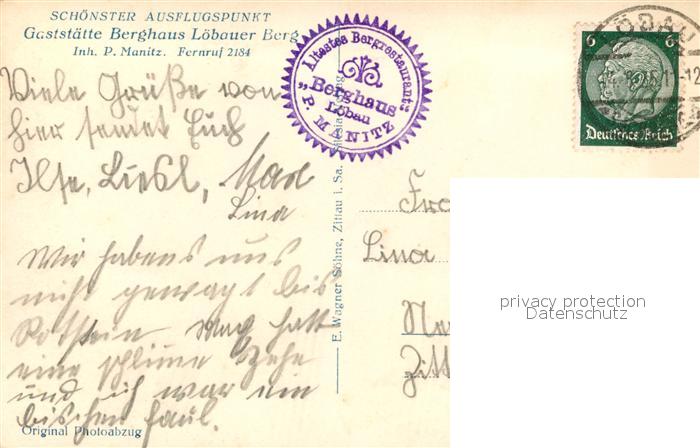 SCHÖNSTER AUSFLUGSPUNKT
Gaststätte Berghaus Löbauer Berg
Inh. P. Manitz. Fernruf 2184
Viele Grüße von
hier sendet Euch
Ilse, Liesl, Max
Lina
Wir habens uns
nicht gewagt bis
Rotstein. Max hatt
eine schlime Zehe
und ich war ein
bischen faul.
Original Photoabzug
Ältestes Bergrestaurant
„Berghaus
Löbau
P. MANITZ
E. Wagner Söhne, Zittau i. Sa.
LÖBAU
6 6
Deutsches Reich
Lina
Zitt
privacy protection
Datenschutz